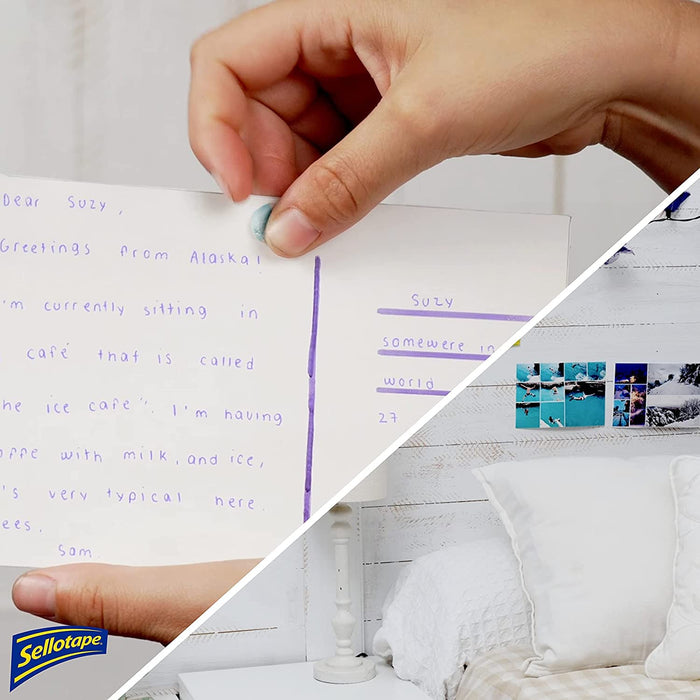 Dear Suzy,
Greetings from Alaska!
I'm currently sitting in
café that is called
the ice café". I'm having
coffe with milk, and ice,
it's very typical here.
ees.
Sam.
Suzy
somewere in
world
27
Sellotape